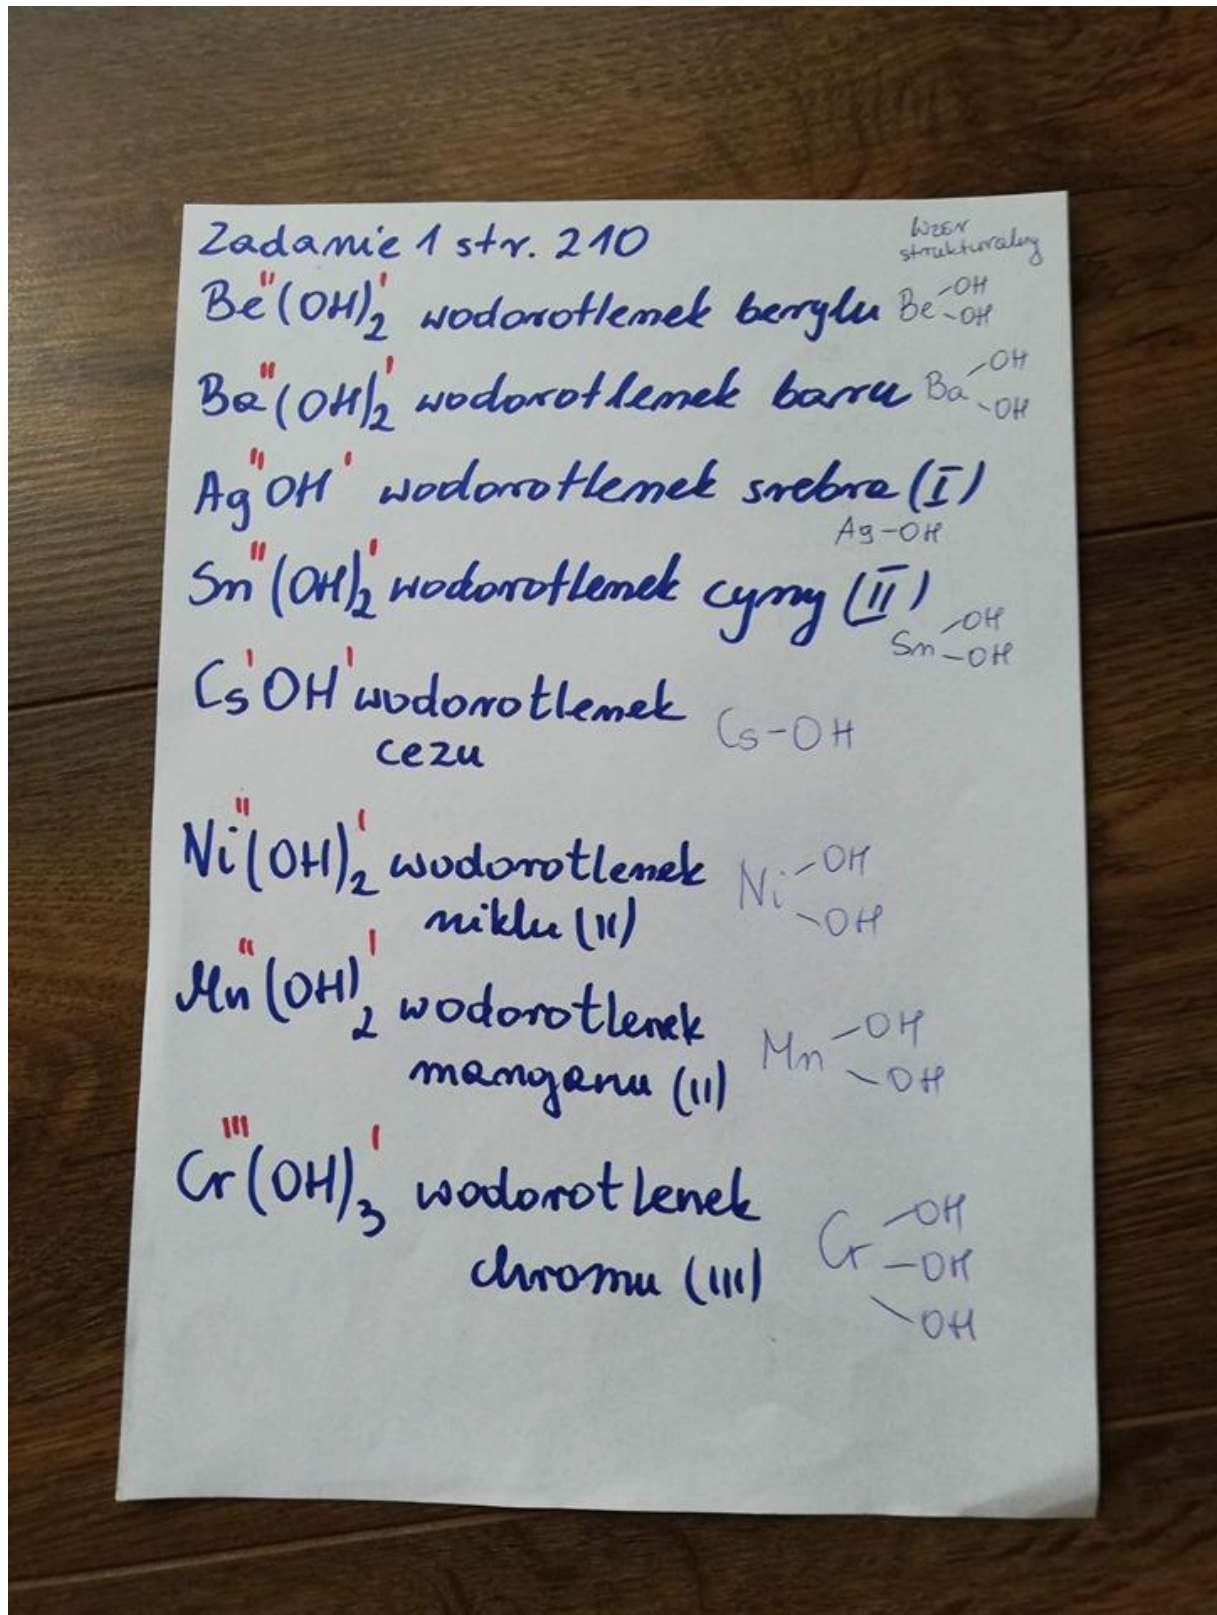 Zadanie 1 str. 210
Wzór strukturalny
Be^II(OH)₂^I wodorotlenek berylu Be -OH -OH
Ba^II(OH)₂^I wodorotlenek baru Ba -OH -OH
Ag^II OH^I wodorotlenek srebra (I)
Ag-OH
Sn^II(OH)₂^I wodorotlenek cyny (II)
Sn -OH -OH
Cs^I OH^I wodorotlenek
cezu
Cs-OH
Ni^II(OH)₂^I wodorotlenek
niklu (II)
Ni -OH -OH
Mn^II(OH)₂^I wodorotlenek
manganu (II)
Mn -OH -OH
Cr^III(OH)₃^I wodorotlenek
chromu (III)
Cr -OH -OH -OH